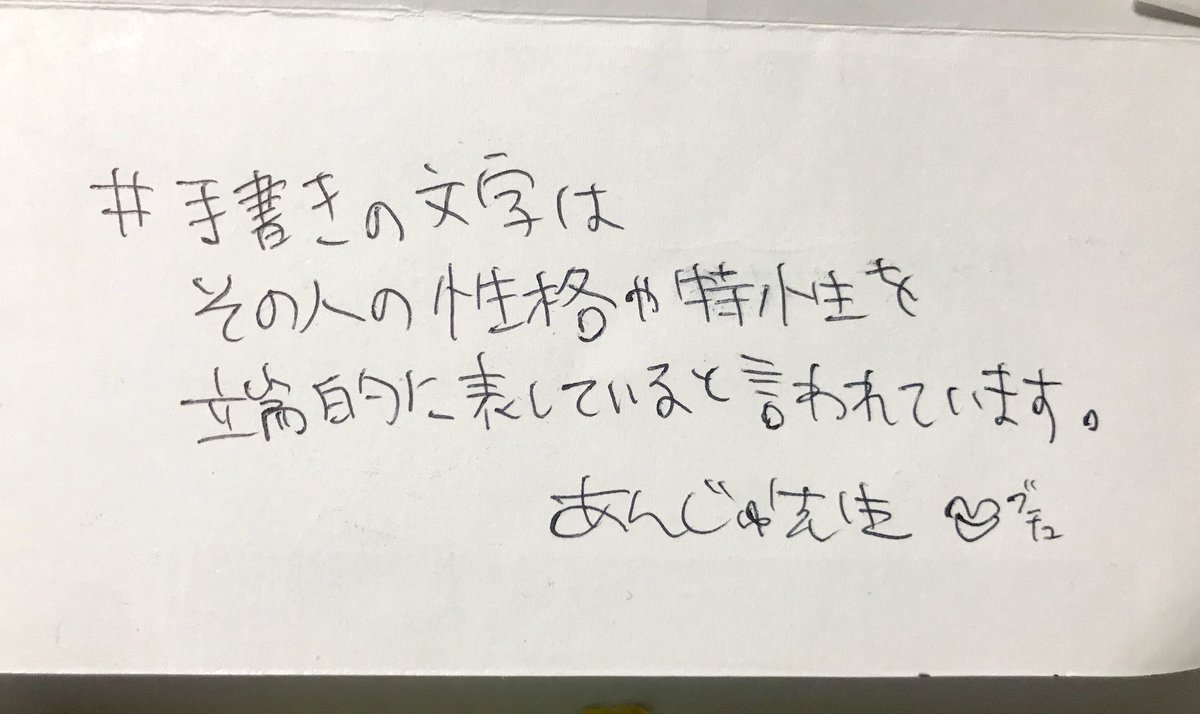 #手書きの文字は
その人の性格や特性を
端的に表していると言われています。
あんじゅ先生 ♡ブチュ